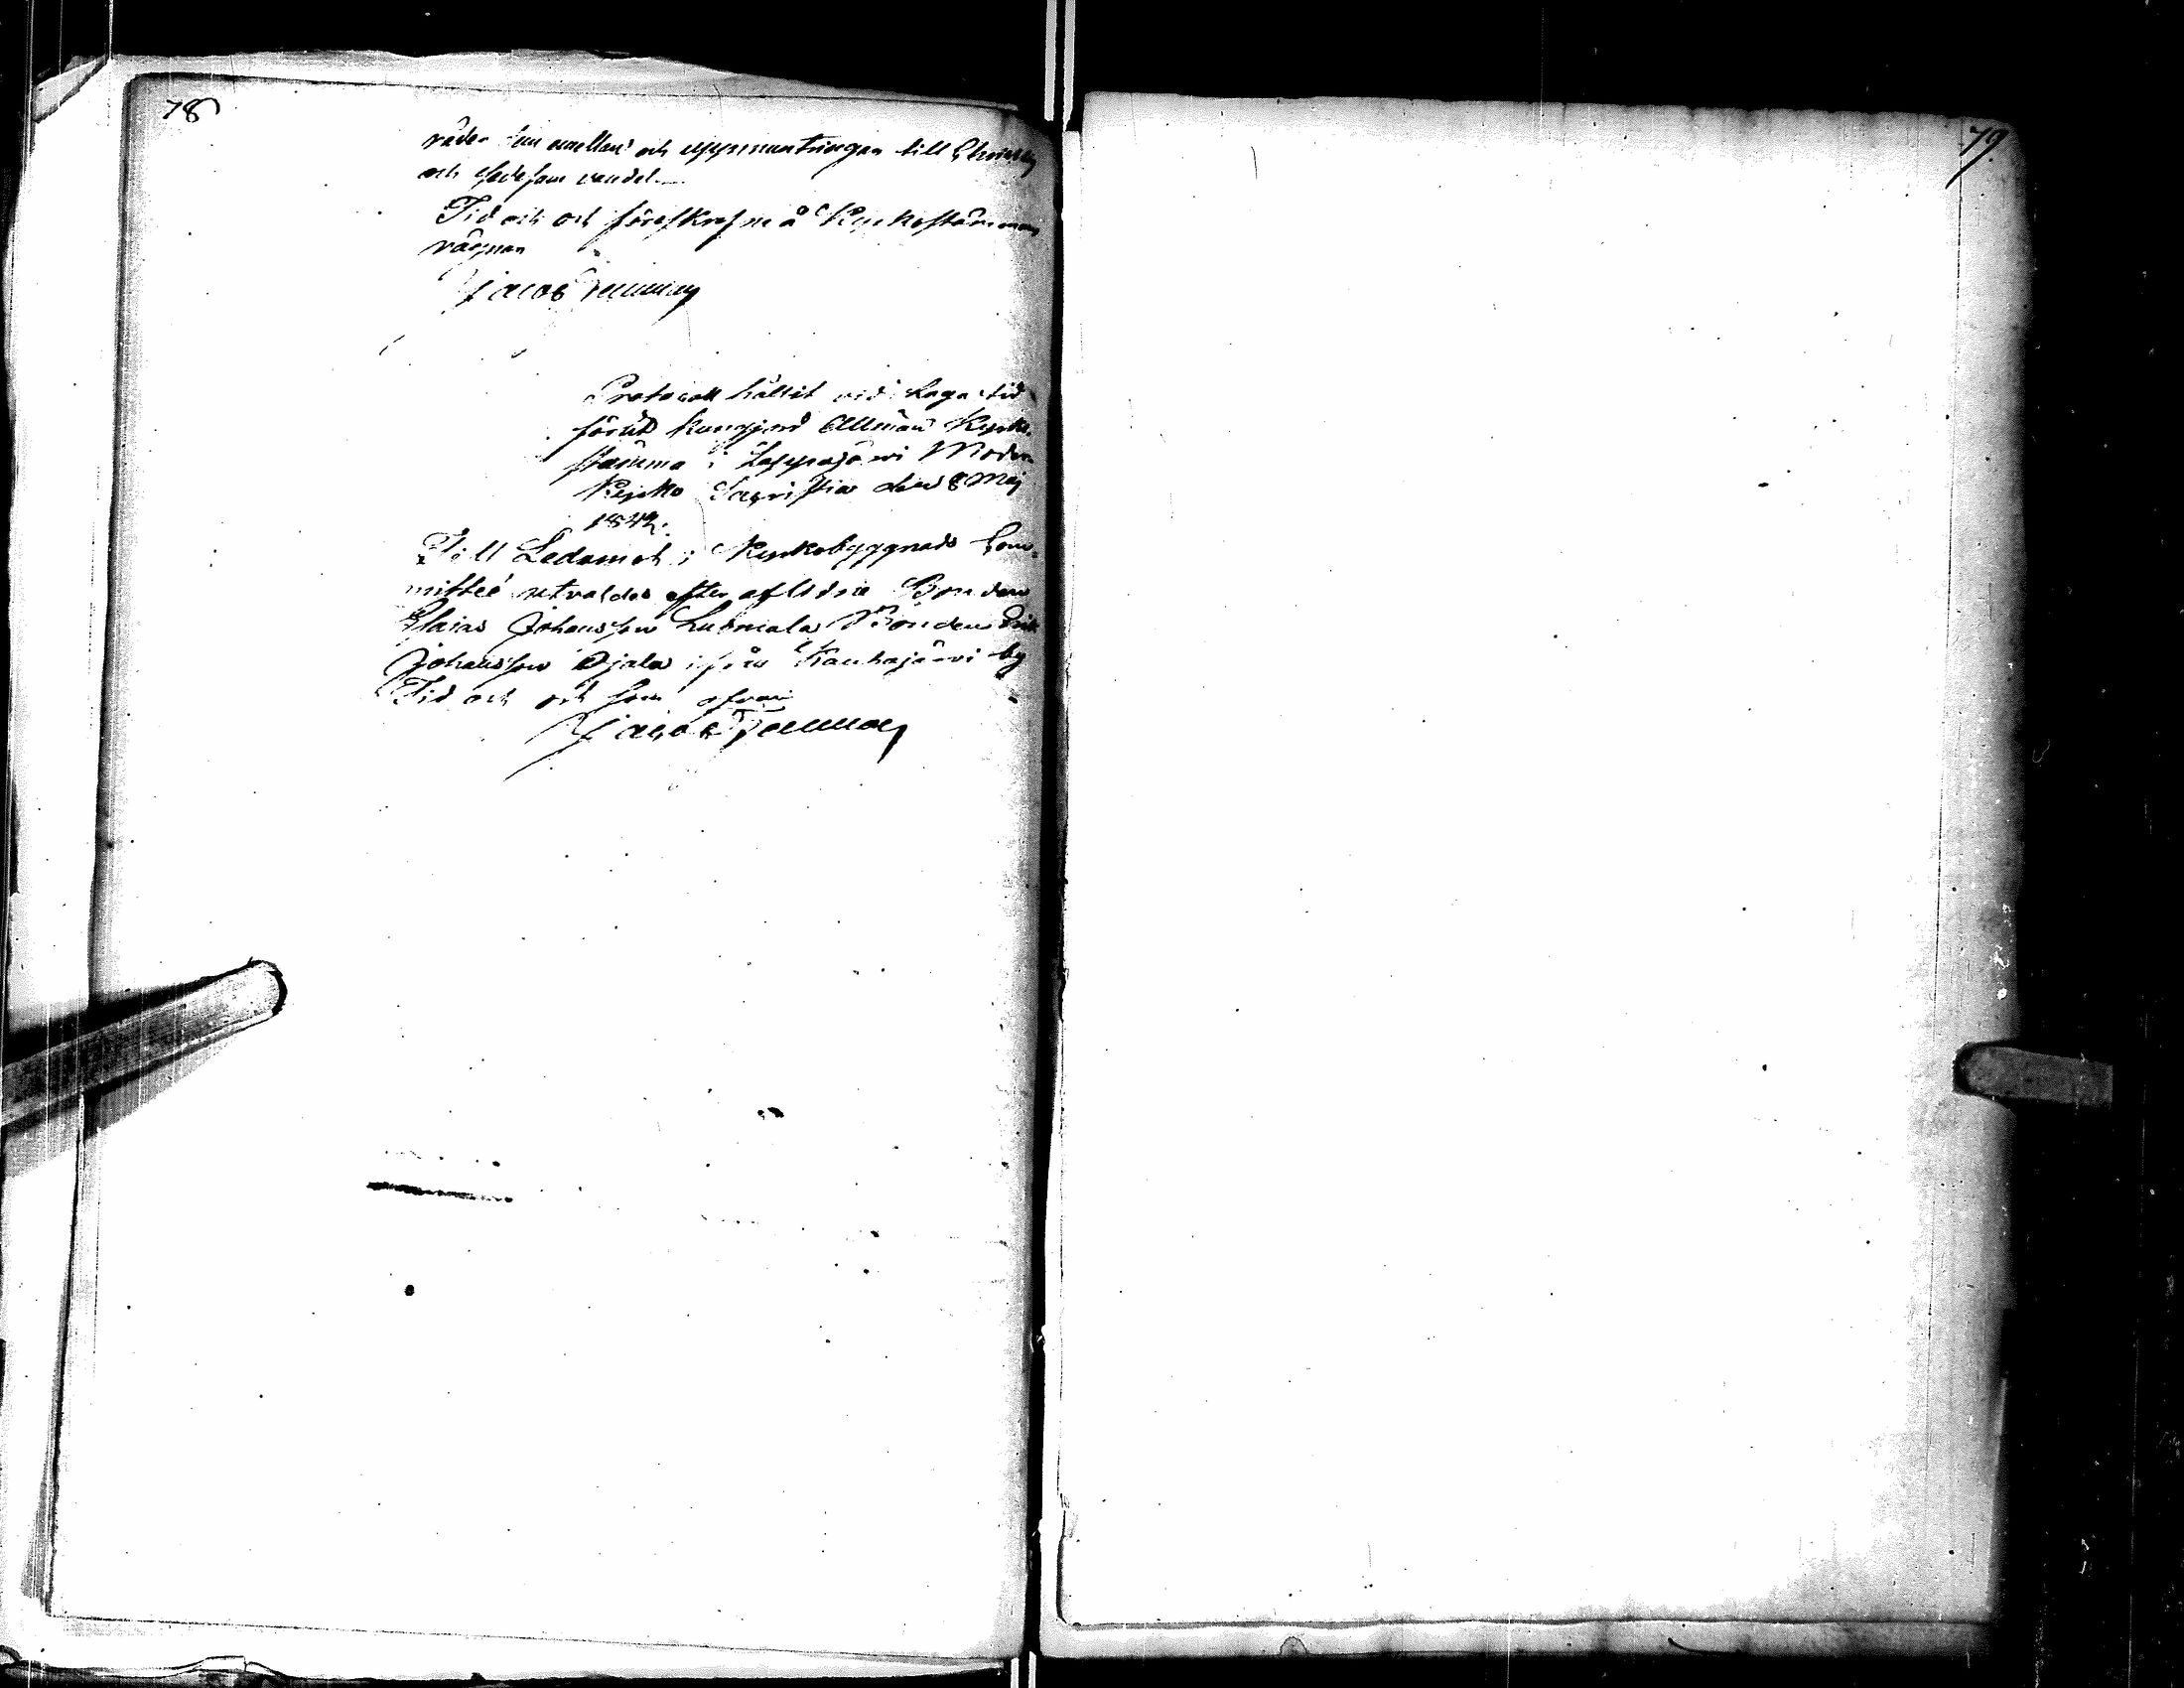 78
råder dem emellan och uppmuntringar till Christlig
och sedesam vandel.
Tid och ort förefkrefne å Kyrkostämmans
vägnar
Jacob
Protocoll hållit vid Laga tid
förut kungjord Allmän Kyrko
stämma i Lappajärvi Moder
Kyrko Sacristia den 8 Maj
184
Till Ledamot i Kyrkobyggnads Com-
mitteé utvaldes efter aflidne Bonden
Esaias Johansson Bonden Erik
Johansson Ojala ifrån Kauhajärvi by
Tid och ort som ofvan
Jacob
79